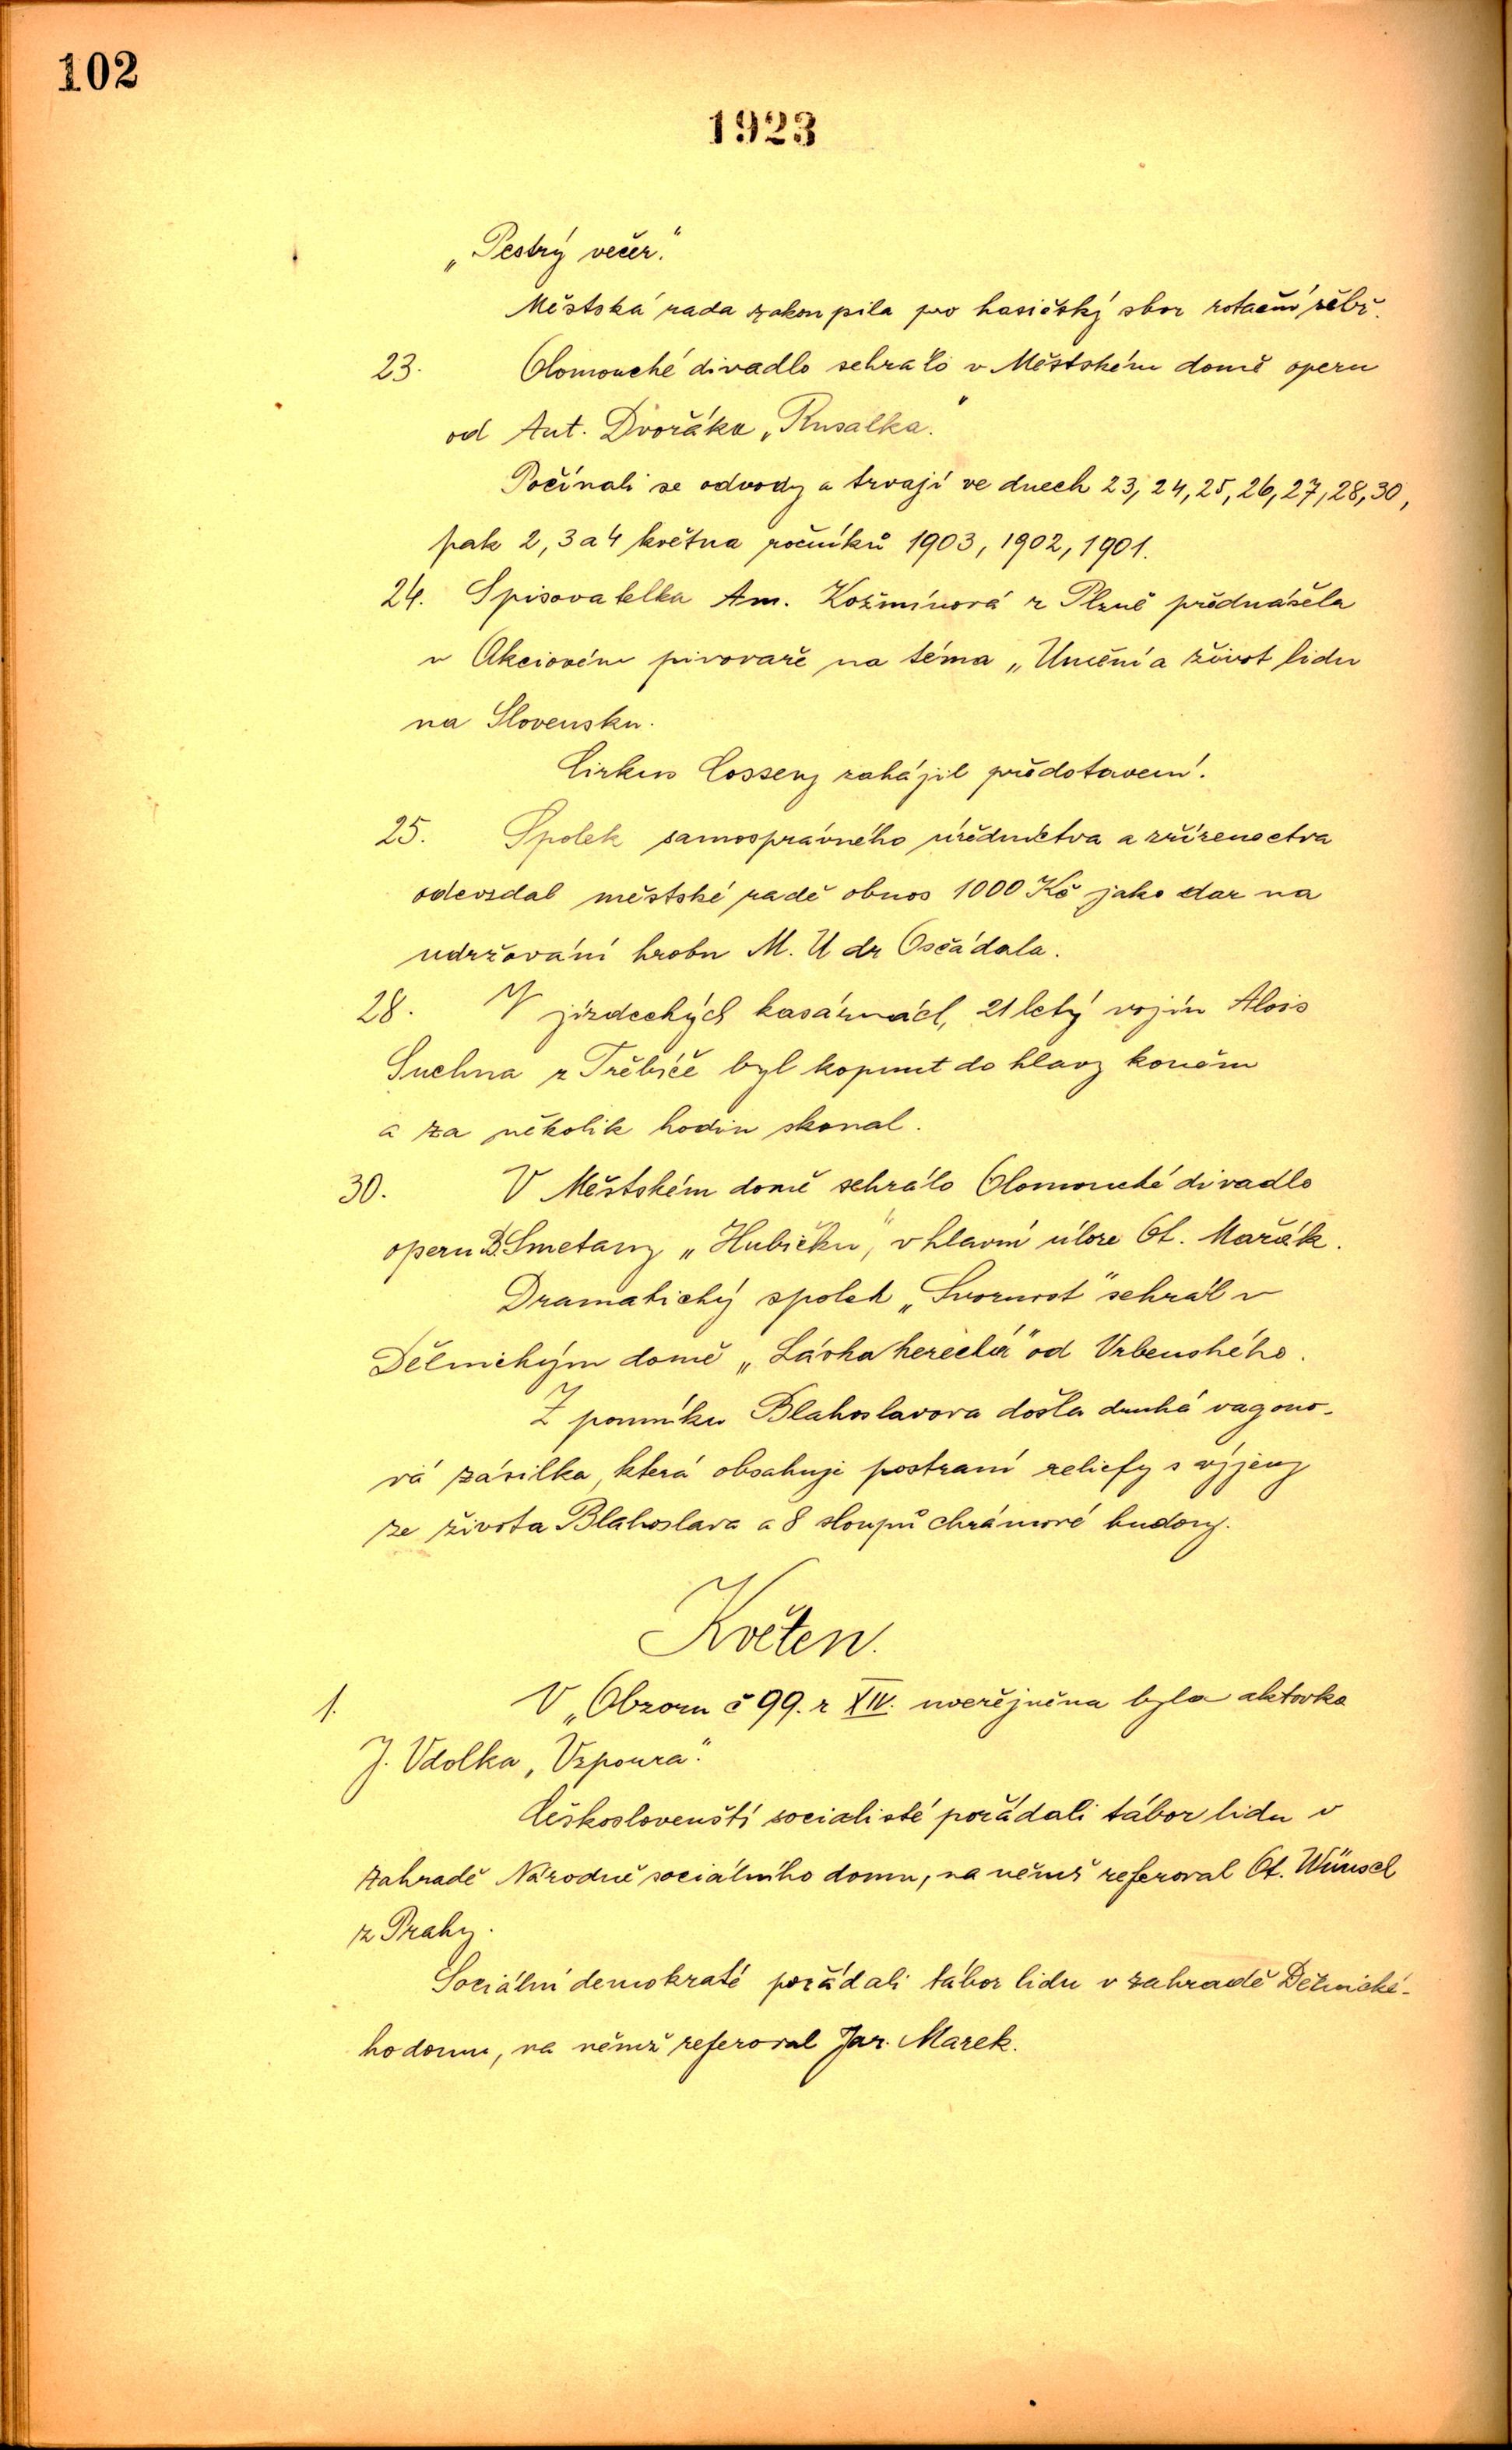 102
1923
„Pestrý večer."
Městská rada zakoupila pro hasičský sbor rotační žebř.
23. Olomouché divadlo sehrálo v Městském domě operu
od Ant. Dvořáka „Rusalka."
Počínali se odvody a trvají ve dnech 23, 24, 25, 26, 27, 28, 30,
pak 2, 3 a 4 května ročníků 1903, 1902, 1901.
24. Spisovatelka Am. Kožmínová z Plzně přednášela
v Akciovém pivovaře na téma „Umění a život lidu
na Slovensku.
Cirkus Cosseny zahájil představení.
25. Spolek samosprávného úřednictva a zřízenectva
odevzdal městské radě obnos 1000 Kč jako dar na
udržování hrobu M. U dr Osčádala.
28. V jízdeckých kasárnách, 21letý vojín Alois
Suchna z Třebíče byl kopnut do hlavy koněm
a za několik hodin skonal.
30. V Městském domě sehrálo Olomoucké divadlo
operu B. Smetany „Hubičku", v hlavní úloze Ot. Mařák.
Dramatický spolek „Svornost" sehrál v
Dělnickým domě „Láska herečky" od Urbenského.
Z pomníku Blahoslavova došla druhá vagono-
vá zásilka, která obsahuje postraní reliefy s výjevy
ze života Blahoslava a 8 sloupů chrámové budovy.
Květen.
1. V „Obzoru č 99. r XIV. uveřejněna byla aktovka
J. Vdolka „Vzpoura".
Českoslovenští socialisté pořádali tábor lidu v
zahradě Národně sociálního domu, na němž referoval Ot. Wünsch
z Prahy.
Sociální demokraté pořádali tábor lidu v zahradě Dělnické-
ho domu, na němž referoval Jar. Marek.